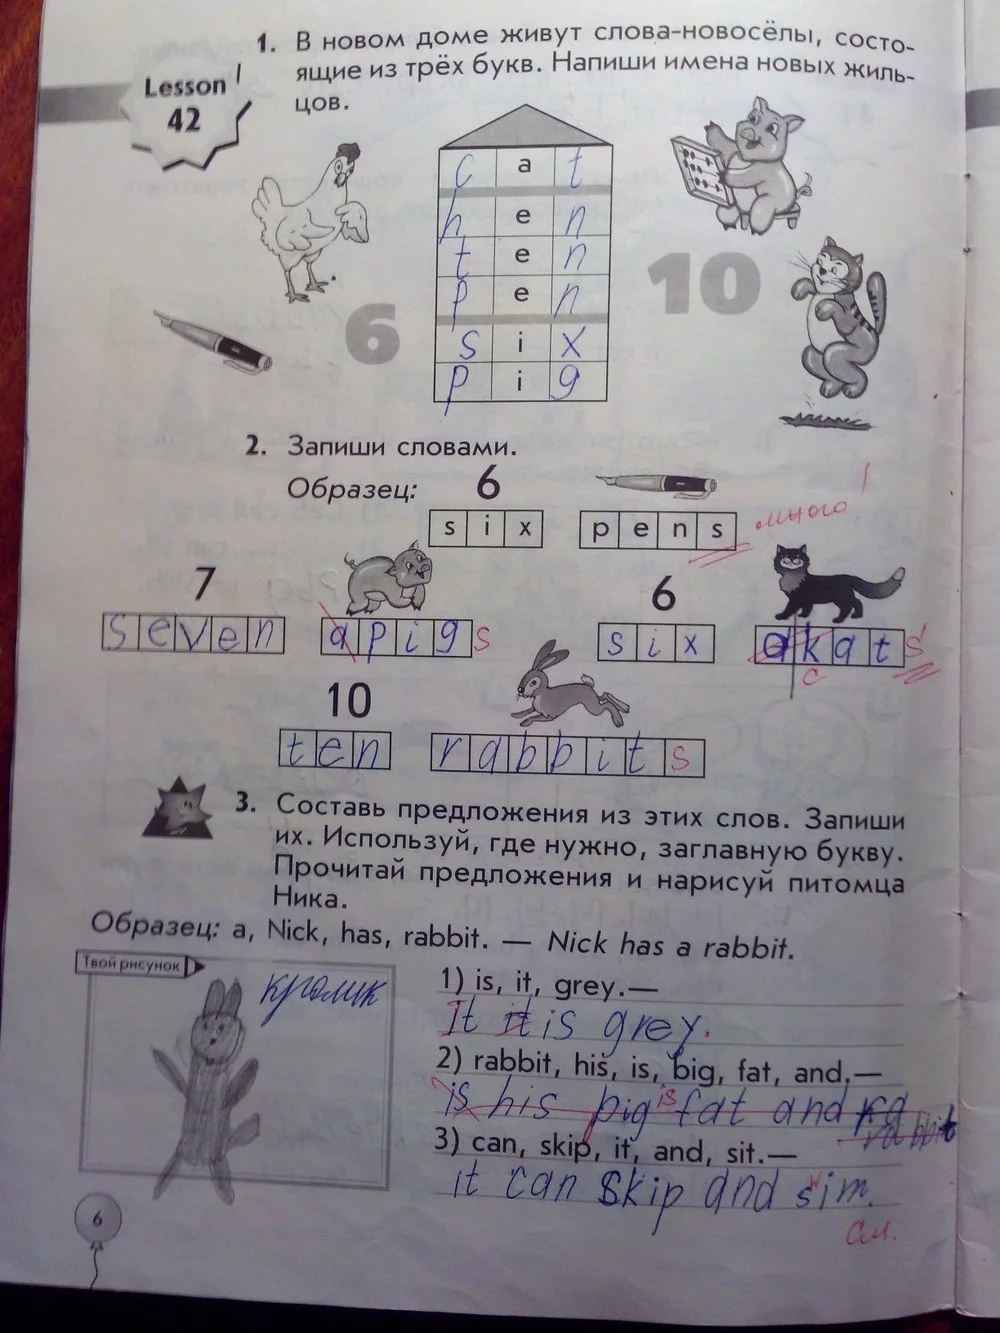 1. В новом доме живут слова-новосёлы, состо-
ящие из трёх букв. Напиши имена новых жиль-
цов.
Lesson
42
c a t
h e n
t e n
p e n
s i x
p i g
6
10
2. Запиши словами.
Образец:
6
s i x
p e n s
много
7
s e v e n
a p i g s
6
s i x
a k a t s
c
10
t e n
r a b b i t s
3. Составь предложения из этих слов. Запиши
их. Используй, где нужно, заглавную букву.
Прочитай предложения и нарисуй питомца
Ника.
Образец: a, Nick, has, rabbit. — Nick has a rabbit.
Твой рисунок
кролик
1) is, it, grey.—
It it is grey.
2) rabbit, his, is, big, fat, and.—
is his pig is fat and ra
rabbit
3) can, skip, it, and, sit.—
it can skip and sim.
см.
6